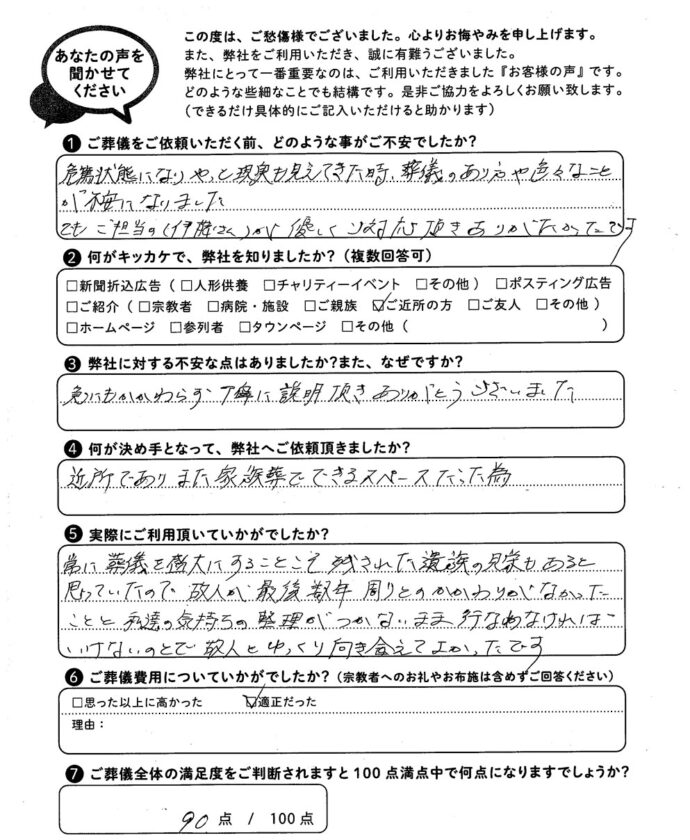 あなたの声を
聞かせて
ください
この度は、ご愁傷様でございました。心よりお悔やみを申し上げます。
また、弊社をご利用いただき、誠に有難うございました。
弊社にとって一番重要なのは、ご利用いただきました『お客様の声』です。
どのような些細なことでも結構です。是非ご協力をよろしくお願い致します。
（できるだけ具体的にご記入いただけると助かります）
❶ ご葬儀をご依頼いただく前、どのような事がご不安でしたか？
危篤状態になりやっと現実も見えてきた時、葬儀のあり方や色々なこと
が不安になりました
でもご担当の(伊藤さん)が優しく対応頂きありがたかったです
❷ 何がキッカケで、弊社を知りましたか？（複数回答可）
□新聞折込広告（□人形供養 □チャリティーイベント □その他）□ポスティング広告
□ご紹介（□宗教者 □病院・施設 □ご親族 ☑ご近所の方 □ご友人 □その他）
□ホームページ □参列者 □タウンページ □その他（ ）
❸ 弊社に対する不安な点はありましたか？また、なぜですか？
急にもかかわらず丁寧に説明頂きありがとうございました
❹ 何が決め手となって、弊社へご依頼頂きましたか？
近所でありまた家族葬でできるスペースだった為
❺ 実際にご利用頂いていかがでしたか？
常に葬儀を盛大にすることこそ残された遺族の見栄もあると
思っていたので故人が最後数年周りとのかかわりがなかった
ことと私達の気持ちの整理がつかないまま行なわなければ
いけないのとで故人とゆっくり向き合えてよかったです
❻ ご葬儀費用についていかがでしたか？（宗教者へのお礼やお布施は含めずご回答ください）
□思った以上に高かった ☑適正だった
理由：
❼ ご葬儀全体の満足度をご判断されますと100点満点中で何点になりますでしょうか？
90点 / 100点